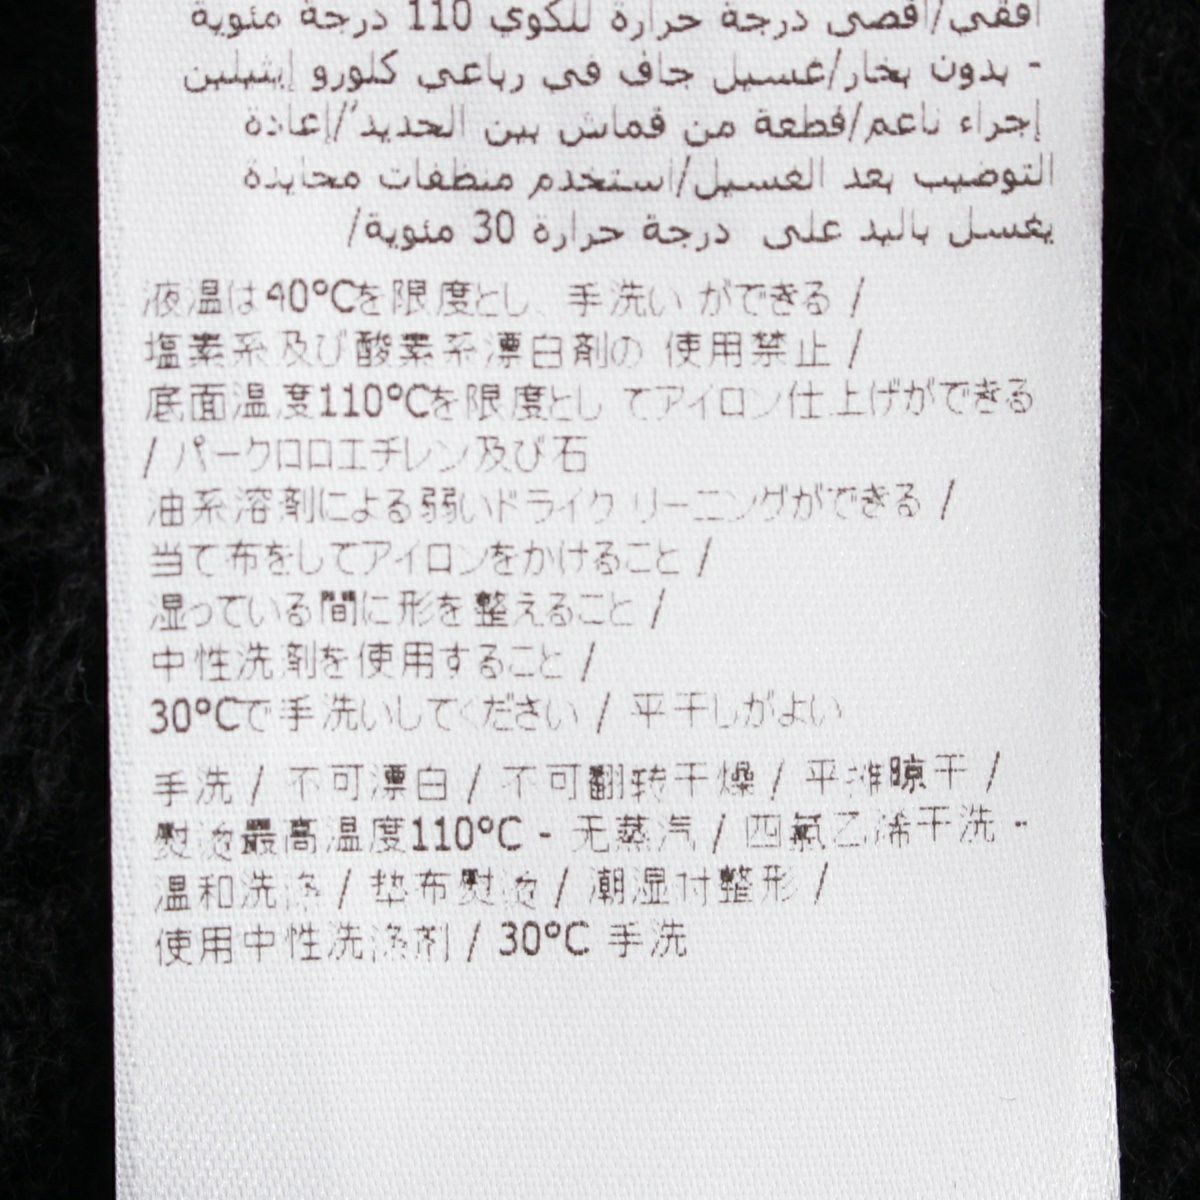 أفقي/أقصى درجة حرارة للكوي 110 درجة مئوية
- بدون بخار/غسيل جاف في رباعي كلورو إيثيلين
إجراء ناعم/قطعة من قماش بين الحديد/إعادة
التوضيب بعد الغسيل/استخدم منظفات محايدة
يغسل باليد على درجة حرارة 30 مئوية/
液温は40°Cを限度とし、手洗い ができる /
塩素系及び酸素系漂白剤の 使用禁止 /
底面温度110°Cを限度とし てアイロン仕上げができる
/ パークロロエチレン及び石
油系溶剤による弱いドライク リーニングができる /
当て布をしてアイロンをかけること /
湿っている間に形を整えること /
中性洗剤を使用すること /
30°Cで手洗いしてください / 平干しがよい
手洗 / 不可漂白 / 不可翻转干燥 / 平摊晾干 /
熨烫最高温度110°C - 无蒸汽 / 四氯乙烯干洗 -
温和洗涤 / 垫布熨烫 / 潮湿时整形 /
使用中性洗涤剂 / 30°C 手洗